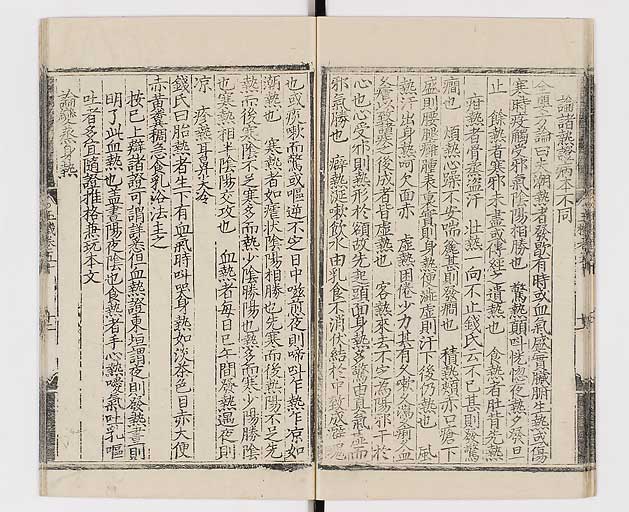 論諸熱證病本不同
全嬰方論曰夫潮熱者發歇有時或血氣盛實臟腑生熱或傷
寒時疫觸受邪氣陰陽相勝也 驚熱顛叫恍惚夜熱夕發旦
止 餘熱者寒邪未盡或傳經之遺熱也 食熱者肚背先熱
疳熱者骨蒸盜汗 壯熱一向不止錢氏云不已甚則發驚
癇也 煩熱心躁不安喘甚則發癇也 積熱頰赤口瘡下
盛則腰腿 腫表裏實則身熱便澁虛則汗下後仍熱也 風
熱汗出身熱呵欠面赤 虛熱困倦少力甚有久嗽久瀉
後成者甘虛熱也 客熱來去不定為陽邪干於
心也心受邪則熱形於額故先起頭面身熱多驚由真氣虛而
邪氣勝也 癖熱涎嗽飲水由乳食不消伏結於中致成
也或痰嗽而驚或嘔逆不定日中 煎夜則啼叫乍熱乍凉如
潮熱也 寒熱者如瘧狀陰陽相勝也先寒而後熱陽不足先
熱而後寒陰不足寒多而熱少陰勝陽也熱多而寒少陽勝陰
也寒熱相半陰陽交攻也 血熱者每日巳午間發熱過夜則
凉 疹熱耳鼻尖冷
錢氏曰胎熱者生下有血氣時叫哭身熱如淡茶色目赤大便
赤黃糞稠急食乳浴法主之
按已上辯諸證可謂詳悉但血熱證東垣謂夜則發熱晝則
明了此血熱也盖晝陽夜陰也食熱者手心熱噯氣吐乳嘔
吐者多宜隨證推格兼玩本文
論 身熱